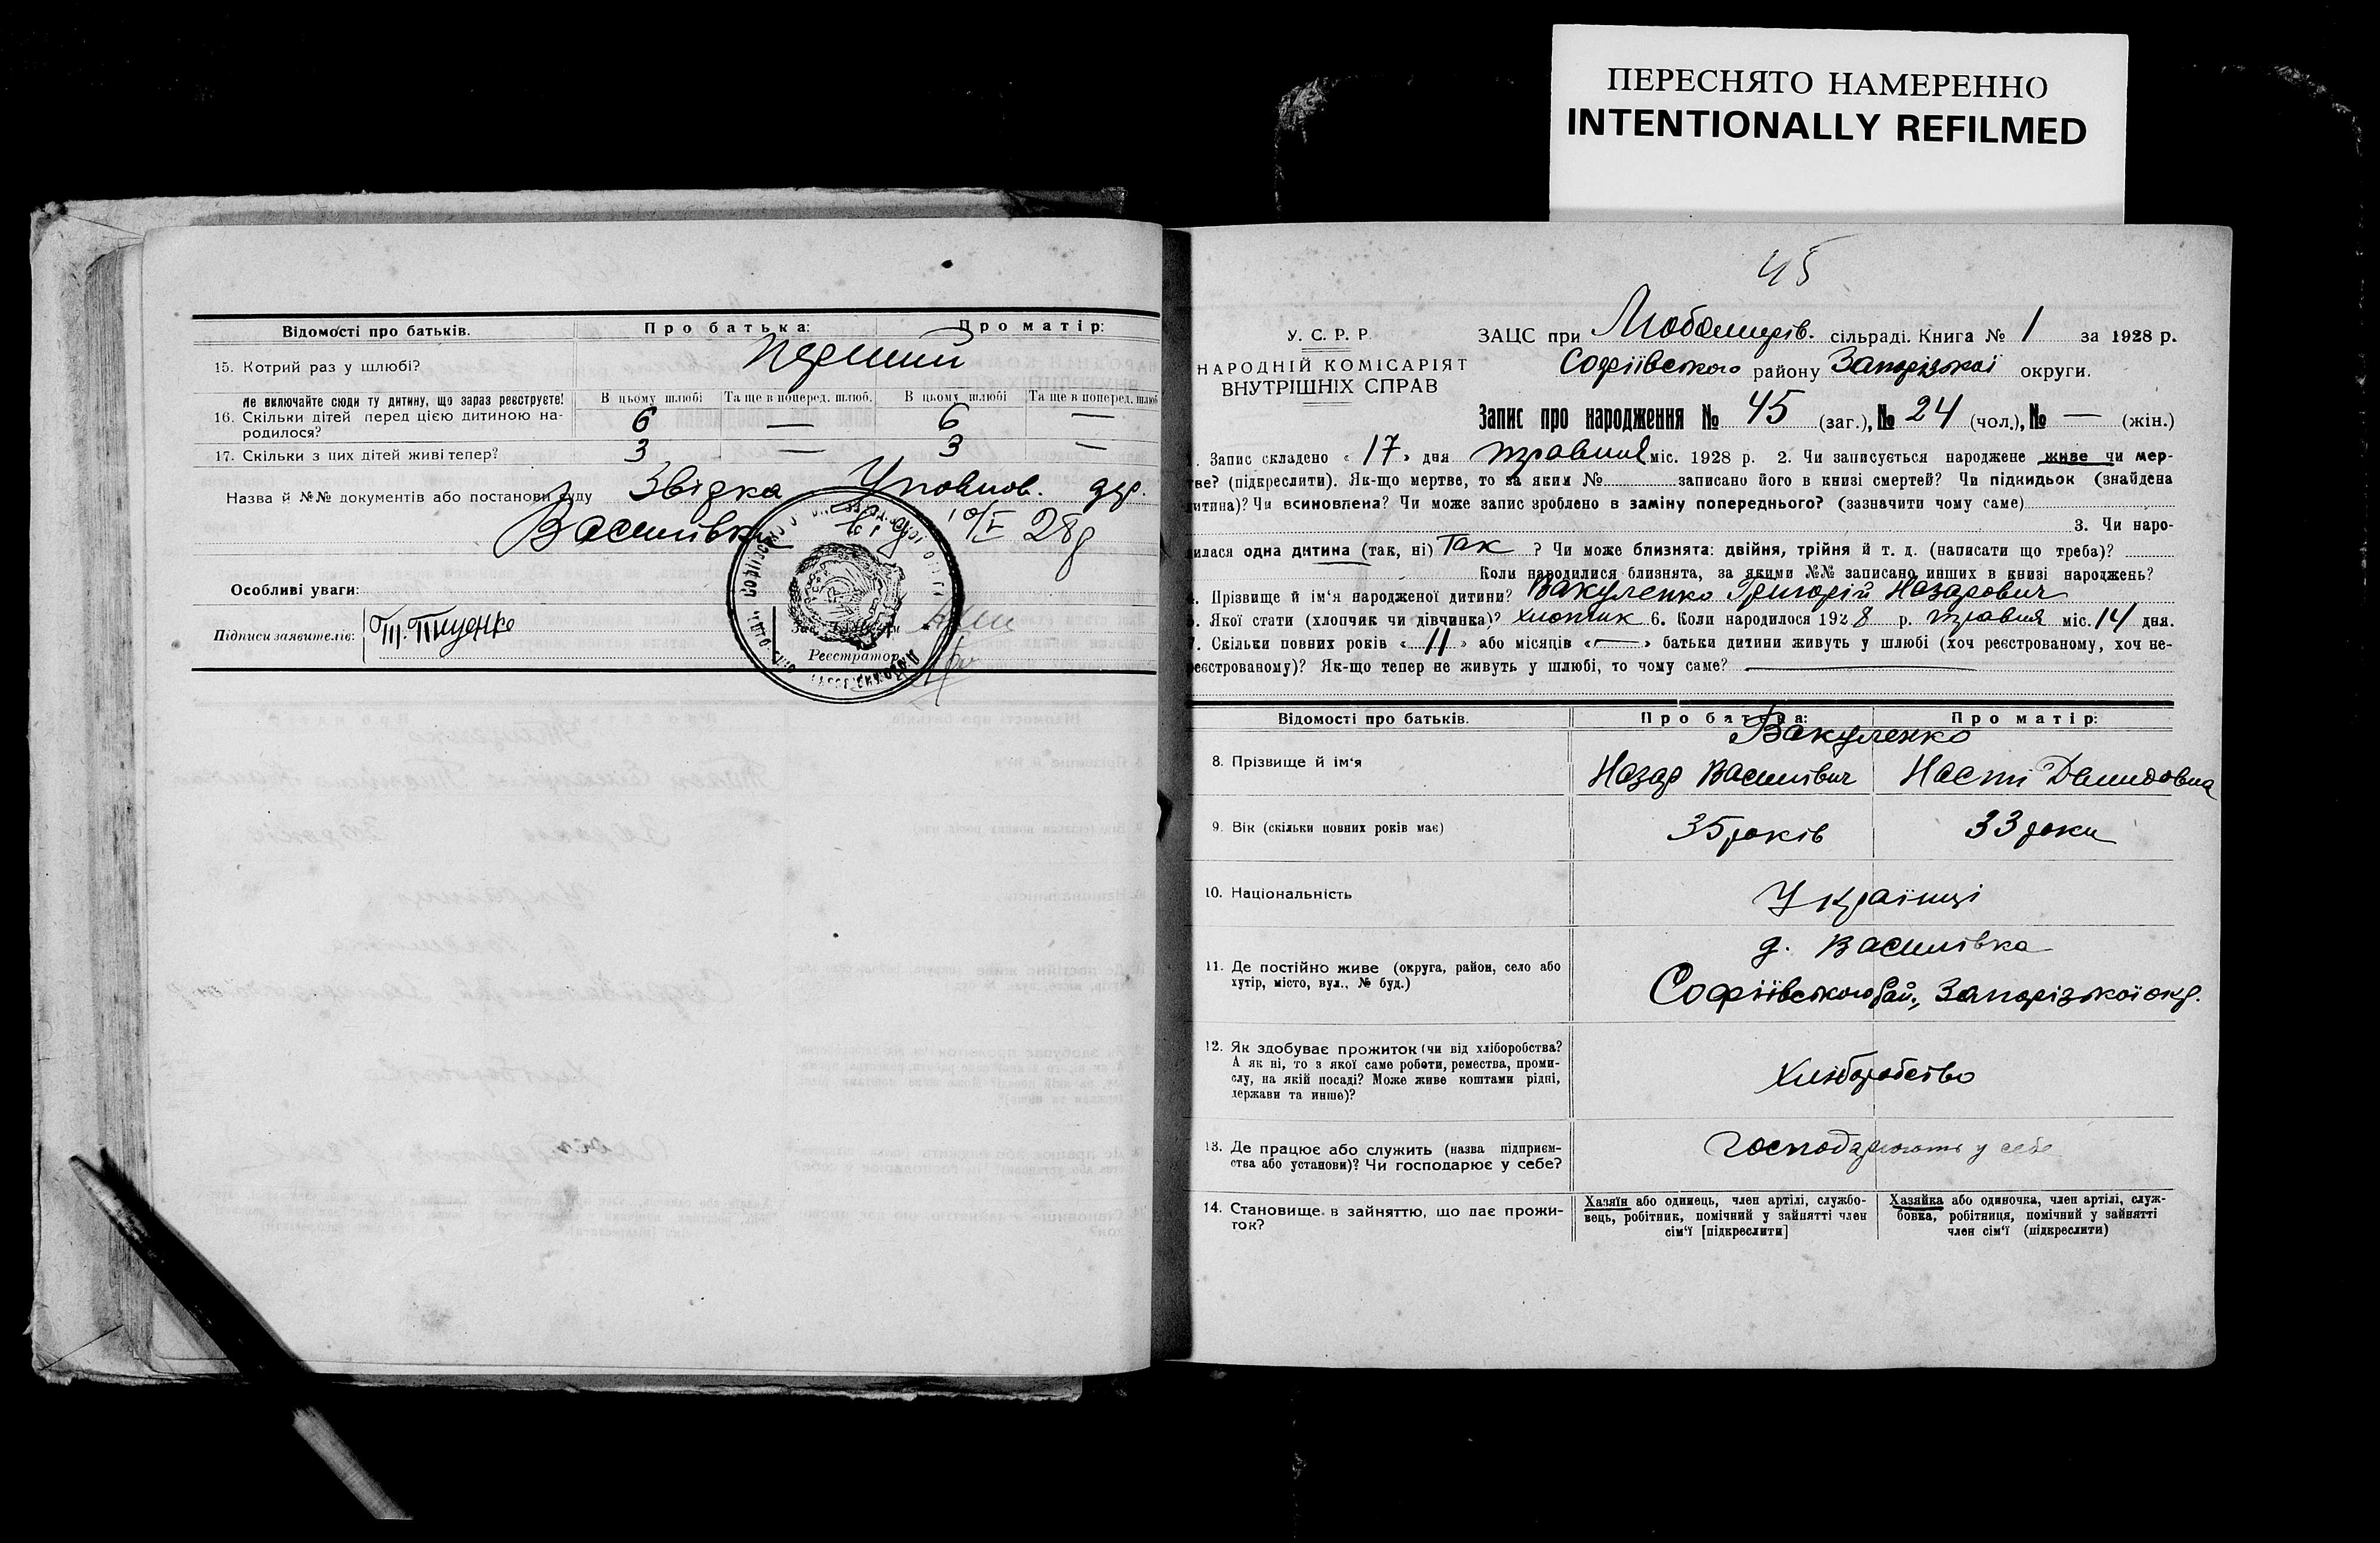 ПЕРЕСНЯТО НАМЕРЕННО
INTENTIONALLY REFILMED
Відомості про батьків. Про батька: Про матір:
15. Котрий раз у шлюбі? перший
Не включайте сюди ту дитину, що зараз реєструєте! В цьому шлюбі Та ще в поперед. шлюб. В цьому шлюбі Та ще в поперед. шлюб
16. Скільки дітей перед цією дитиною на- 6 — 6 —
родилося?
17. Скільки з цих дітей живі тепер? 3 — 3 —
Назва й №№ документів або постанови суду Звідка Уповнов. дер.
Василівка 10/V 28 р
Особливі уваги:
Підписи заявителів: Т. Тищенко
Реєстратор
45
У. С. Р. Р.
НАРОДНІЙ КОМІСАРІЯТ
ВНУТРІШНІХ СПРАВ
ЗАЦС при Любомирів. сільраді. Книга № 1 за 1928 р.
Софіївського району Запорізької округи.
Запис про народження № 45 (заг.), № 24 (чол.), № — (жін.)
1. Запис складено « 17 » дня травня міс. 1928 р. 2. Чи записується народжене живе чи мер-
тве? (підкреслити). Як-що мертве, то за яким № записано його в книзі смертей? Чи підкидьок (знайдена
дитина)? Чи всиновлена? Чи може запис зроблено в заміну попереднього? (зазначити чому саме)
3. Чи наро-
дилася одна дитина (так, ні) так ? Чи може близнята: двійня, трійня й т. д. (написати що треба)?
Коли народилися близнята, за якими №№ записано инших в книзі народжень?
4. Прізвище й ім'я народженої дитини? Вакуленко Григорій Назарович
5. Якої стати (хлопчяк чи дівчинка)? хлопчик 6. Коли народилося 1928 р. травня міс. 14 дня.
7. Скільки повних років « 11 » або місяців « — » батьки дитини живуть у шлюбі (хоч реєстрованому, хоч не-
реєстрованому)? Як-що тепер не живуть у шлюбі, то чому саме? —
Відомості про батьків. Про батька: Про матір:
Вакуленко
8. Прізвище й ім'я Назар Васильович Насті Демидовна
9. Вік (скільки повних років має) 35 років 33 роки
10. Національність Українці
д. Василівка
11. Де постійно живе (округа, район, село або
хутір, місто, вул., № буд.) Софіївського рай., Запорізької окр.
12. Як здобуває прожиток (чи від хліборобства?
А як ні, то з якої саме роботи, ремества, проми-
слу, на якій посаді? Може живе коштами рідні,
держави та инше)? Хліборобство
13. Де працює або служить (назва підприєм-
ства або установи)? Чи господарює у себе? господарюють у себе
14. Становище в зайняттю, що дає прожи-
ток?
Хазяїн або одинець, член артілі, службо-
вець, робітник, помічний у зайнятті член
сім'ї [підкреслити]
Хазяйка або одиночка, член артілі, служ-
бовка, робітниця, помічний у зайнятті
член сім'ї (підкреслити)